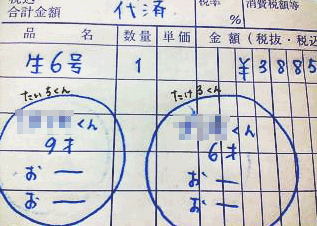 税込 合計金額 代済 税率 % 消費税額等
品名 数量 単価 金額(税抜・税込
生6号 1 ¥3885
たいちくん たけるくん
くん くん
9才 6才
おー おー
おー おー